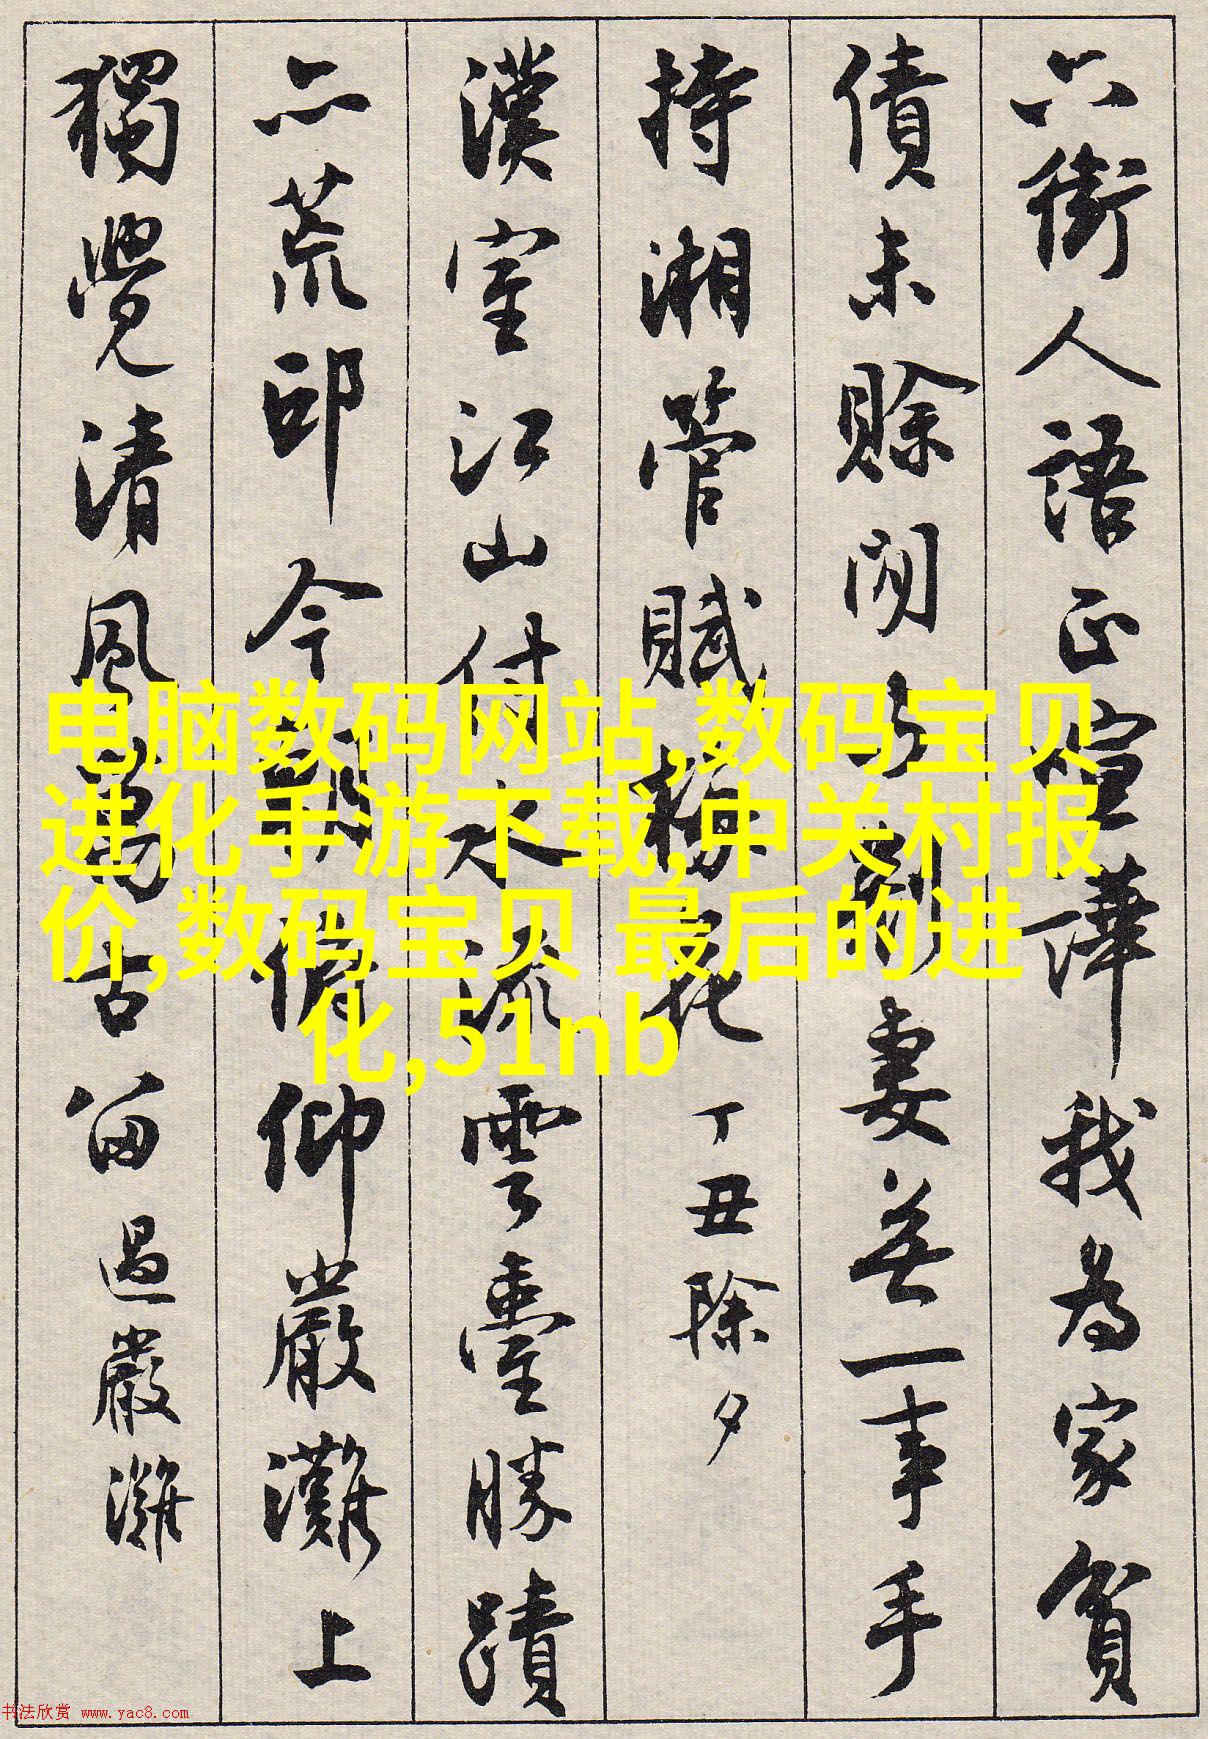 六街人語正喧譁我為家貧
債未賒閒與劉妻無一事手
持湘管賦梅花 丁丑除夕
漢室江山付水流雲臺勝蹟
亦荒邱今朝俯仰嚴灘上
獨覺清風萬古留 過嚴灘
电脑数码网站,数码宝贝
进化手游下载,中关村报
价,数码宝贝 最后的进
化,51nb
书法欣赏 www.yac8.com